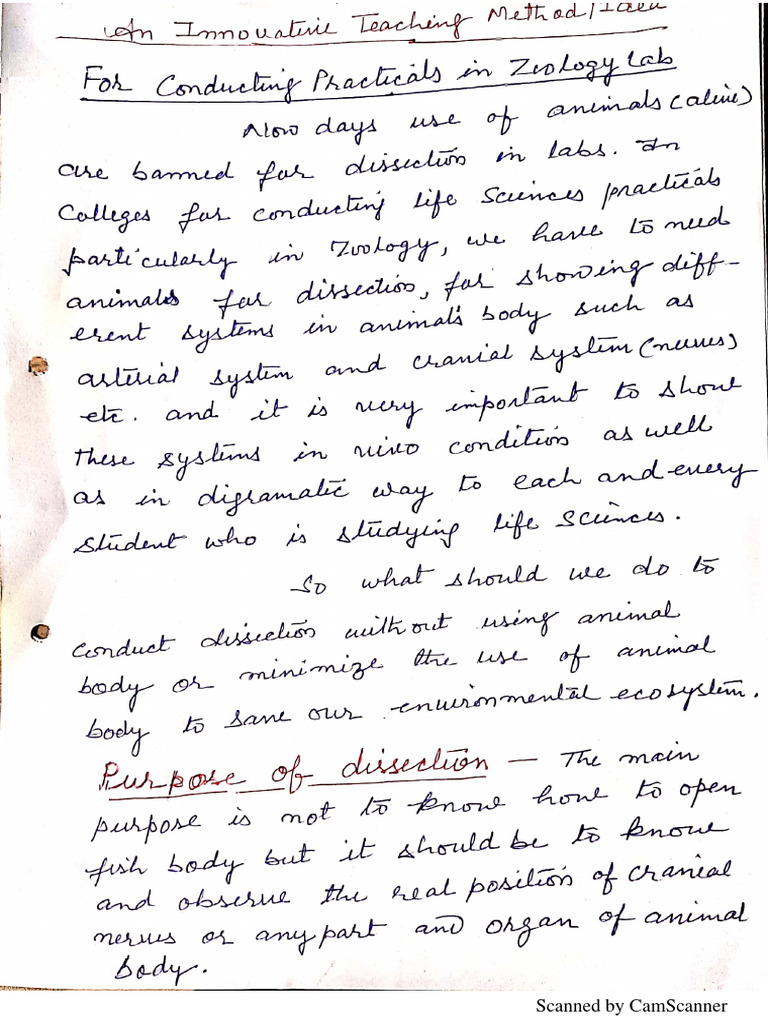 An Innovative Teaching Method/Idea
For Conducting Practicals in Zoology Lab
Now days use of animals (alive)
are banned for dissection in labs. In
Colleges for conducting life Sciences practicals
particularly in Zoology, we have to need
animals for dissection, for showing diff-
erent systems in animal's body such as
arterial system and cranial system (nerves)
etc. and it is very important to show
these systems in vivo condition as well
as in digramatic way to each and every
student who is studying life Sciences.
So what should we do to
conduct dissection without using animal
body or minimize the use of animal
body to save our environmental ecosystem.
Purpose of dissection - The main
purpose is not to know how to open
fish body but it should be to know
and observe the real position of cranial
nerves or any part and organ of animal
body.
Scanned by CamScanner